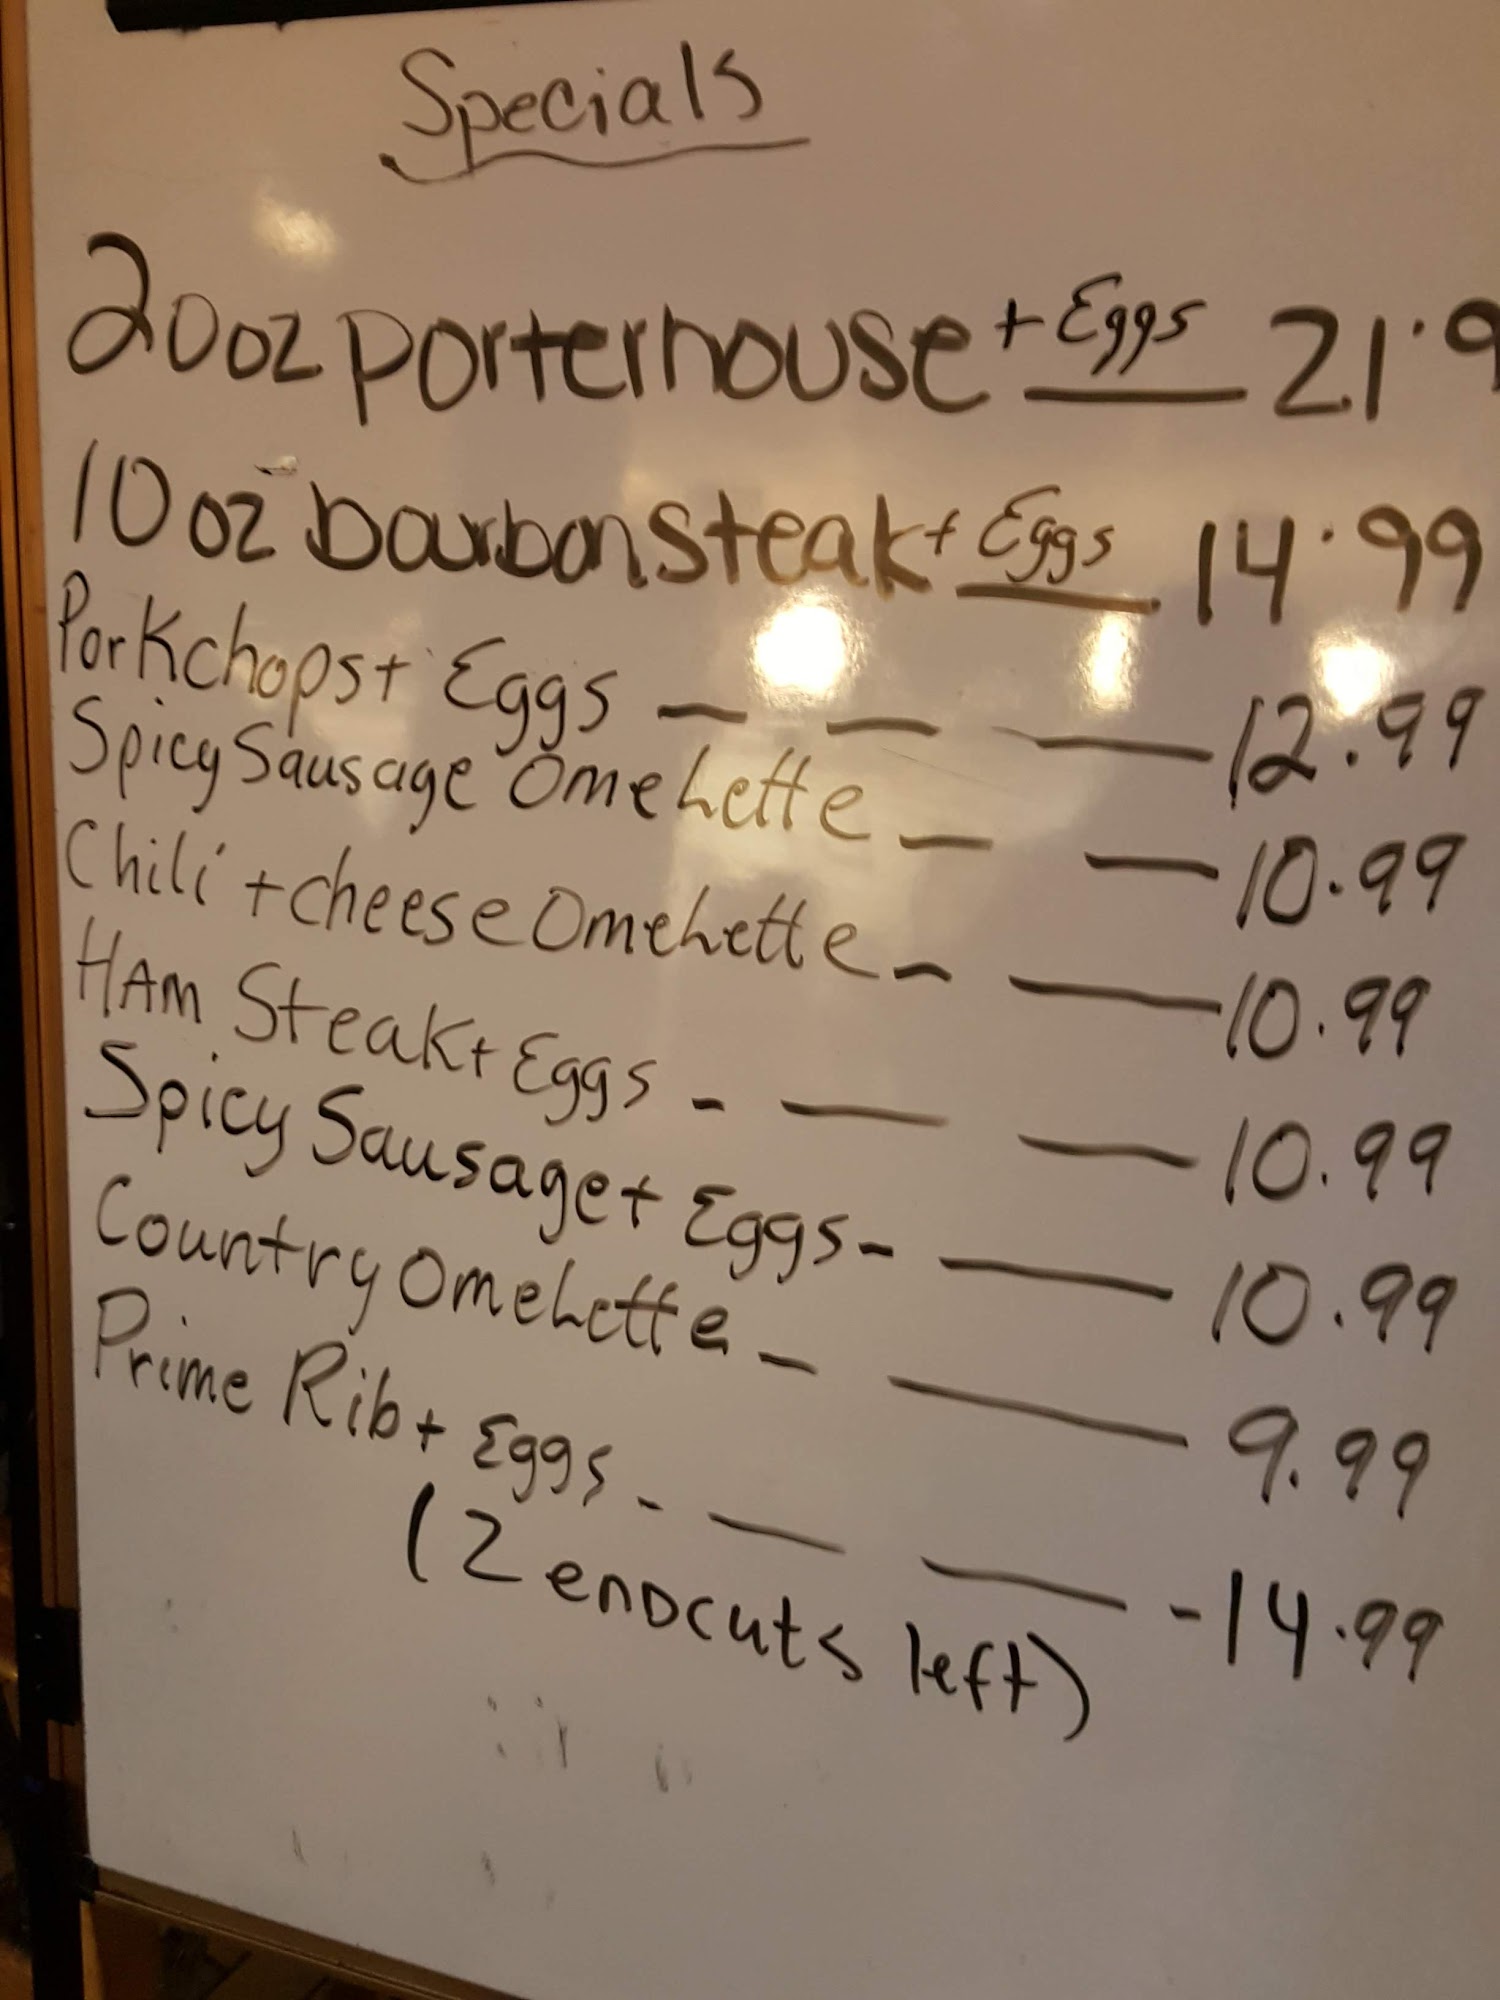 Specials
20oz porterhouse + Eggs __ 21.9
10 oz bourbon steak + Eggs __ 14.99
Porkchops + Eggs - - - 12.99
Spicy Sausage Omelette - - 10.99
Chili + cheese Omelette - - 10.99
HAM Steak + Eggs - - - 10.99
Spicy Sausage + Eggs - - 10.99
Country Omelette - - 9.99
Prime Rib + Eggs - - - - 14.99
(2 endcuts left)